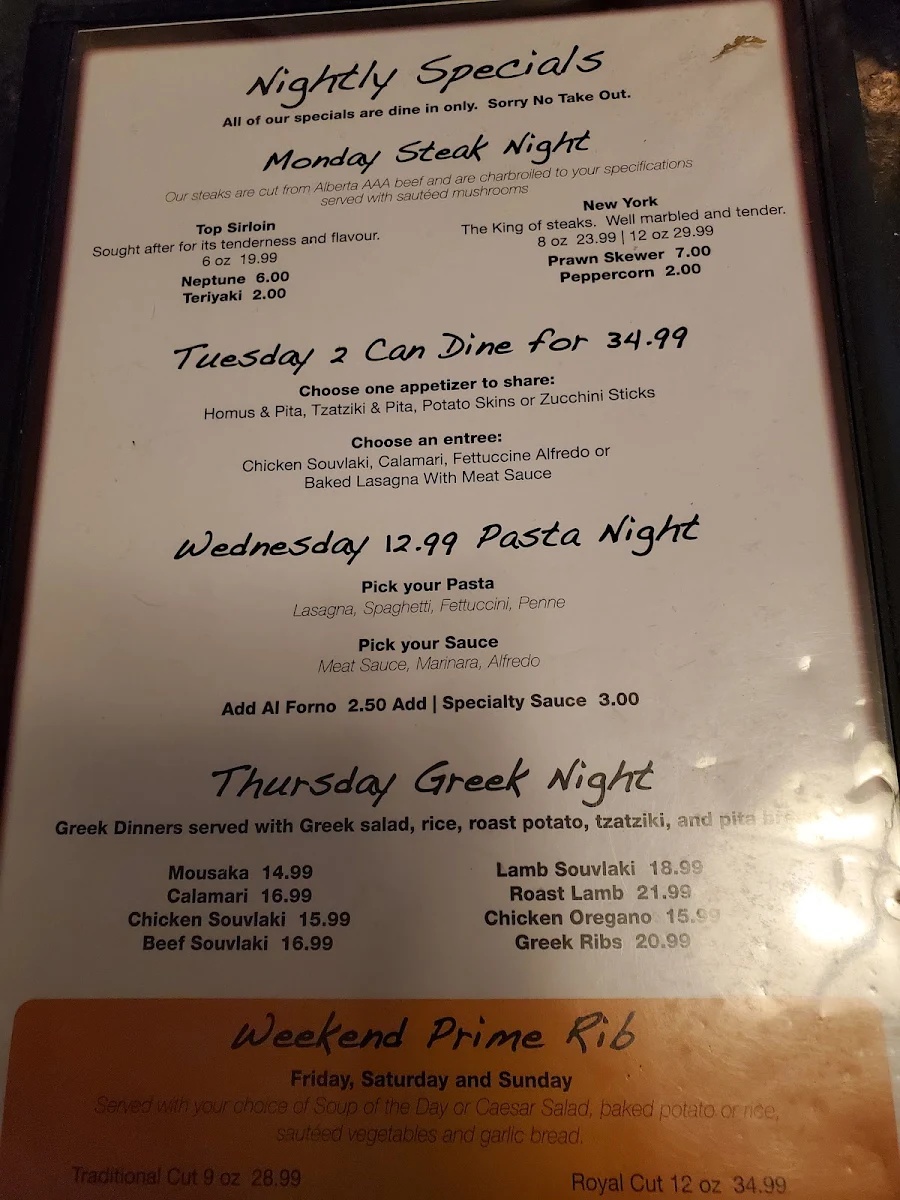 Nightly Specials
All of our specials are dine in only. Sorry No Take Out.
Monday Steak Night
Our steaks are cut from Alberta AAA beef and are charbroiled to your specifications
served with sautéed mushrooms
Top Sirloin
Sought after for its tenderness and flavour.
6 oz 19.99
Neptune 6.00
Teriyaki 2.00
New York
The King of steaks. Well marbled and tender.
8 oz 23.99 | 12 oz 29.99
Prawn Skewer 7.00
Peppercorn 2.00
Tuesday 2 Can Dine for 34.99
Choose one appetizer to share:
Homus & Pita, Tzatziki & Pita, Potato Skins or Zucchini Sticks
Choose an entree:
Chicken Souvlaki, Calamari, Fettuccine Alfredo or
Baked Lasagna With Meat Sauce
Wednesday 12.99 Pasta Night
Pick your Pasta
Lasagna, Spaghetti, Fettuccini, Penne
Pick your Sauce
Meat Sauce, Marinara, Alfredo
Add Al Forno 2.50 Add | Specialty Sauce 3.00
Thursday Greek Night
Greek Dinners served with Greek salad, rice, roast potato, tzatziki, and pita
Mousaka 14.99
Calamari 16.99
Chicken Souvlaki 15.99
Beef Souvlaki 16.99
Lamb Souvlaki 18.99
Roast Lamb 21.99
Chicken Oregano 15.99
Greek Ribs 20.99
Weekend Prime Rib
Friday, Saturday and Sunday
Served with your choice of Soup of the Day or Caesar Salad, baked potato or rice,
sautéed vegetables and garlic bread.
Traditional Cut 9 oz 28.99
Royal Cut 12 oz 34.99